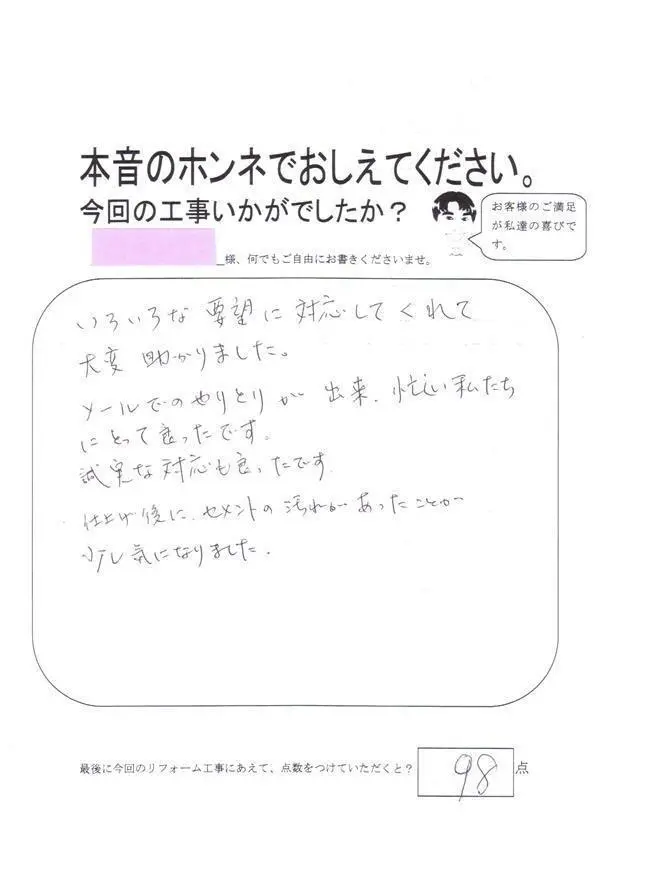 本音のホンネでおしえてください。
今回の工事いかがでしたか？
お客様のご満足
が私達の喜びで
す。
様、何でもご自由にお書きくださいませ。
いろいろな 要望に 対応してくれて
大変 助かりました。
メールでのやりとりが 出来、忙しい私たち
にとって良ったです。
誠実な対応も良ったです。
仕上げ後に、セメントの汚れがあったことが
少し気になりました。
最後に今回のリフォーム工事にあえて、点数をつけていただくと？
98 点